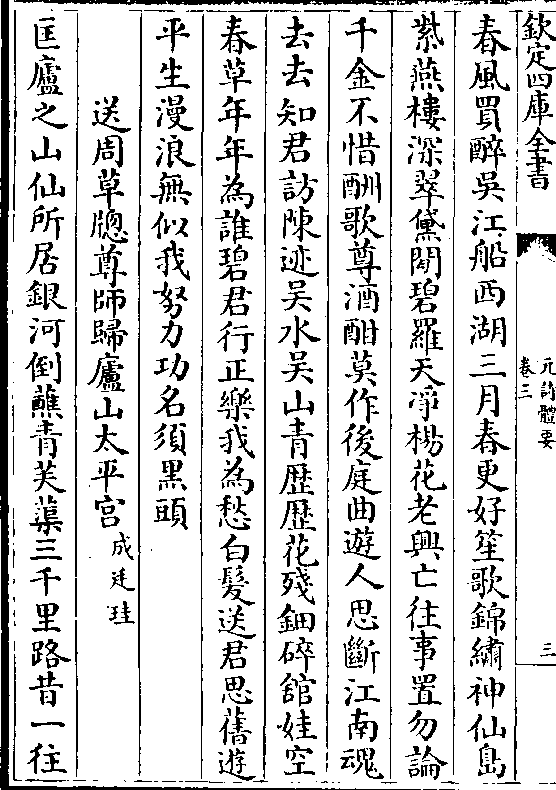 欽定四庫全書
元詩體要
卷三
三
春風買醉吳江船西湖三月春更好笙歌錦繡神仙島
紫燕樓深翠黛閑碧羅天凈楊花老興亡往事置勿論
千金不惜酬歌尊酒酣莫作後庭曲遊人思斷江南魂
去去知君訪陳迹吳水吳山青歷歷花殘鈿碎舘娃空
春草年年為誰碧君行正樂我為愁白髮送君思舊遊
平生漫浪無似我努力功名須黑頭
送周草牕尊師歸廬山太平宫
成廷珪
匡廬之山仙所居銀河倒蘸青芙蕖三千里路昔一往